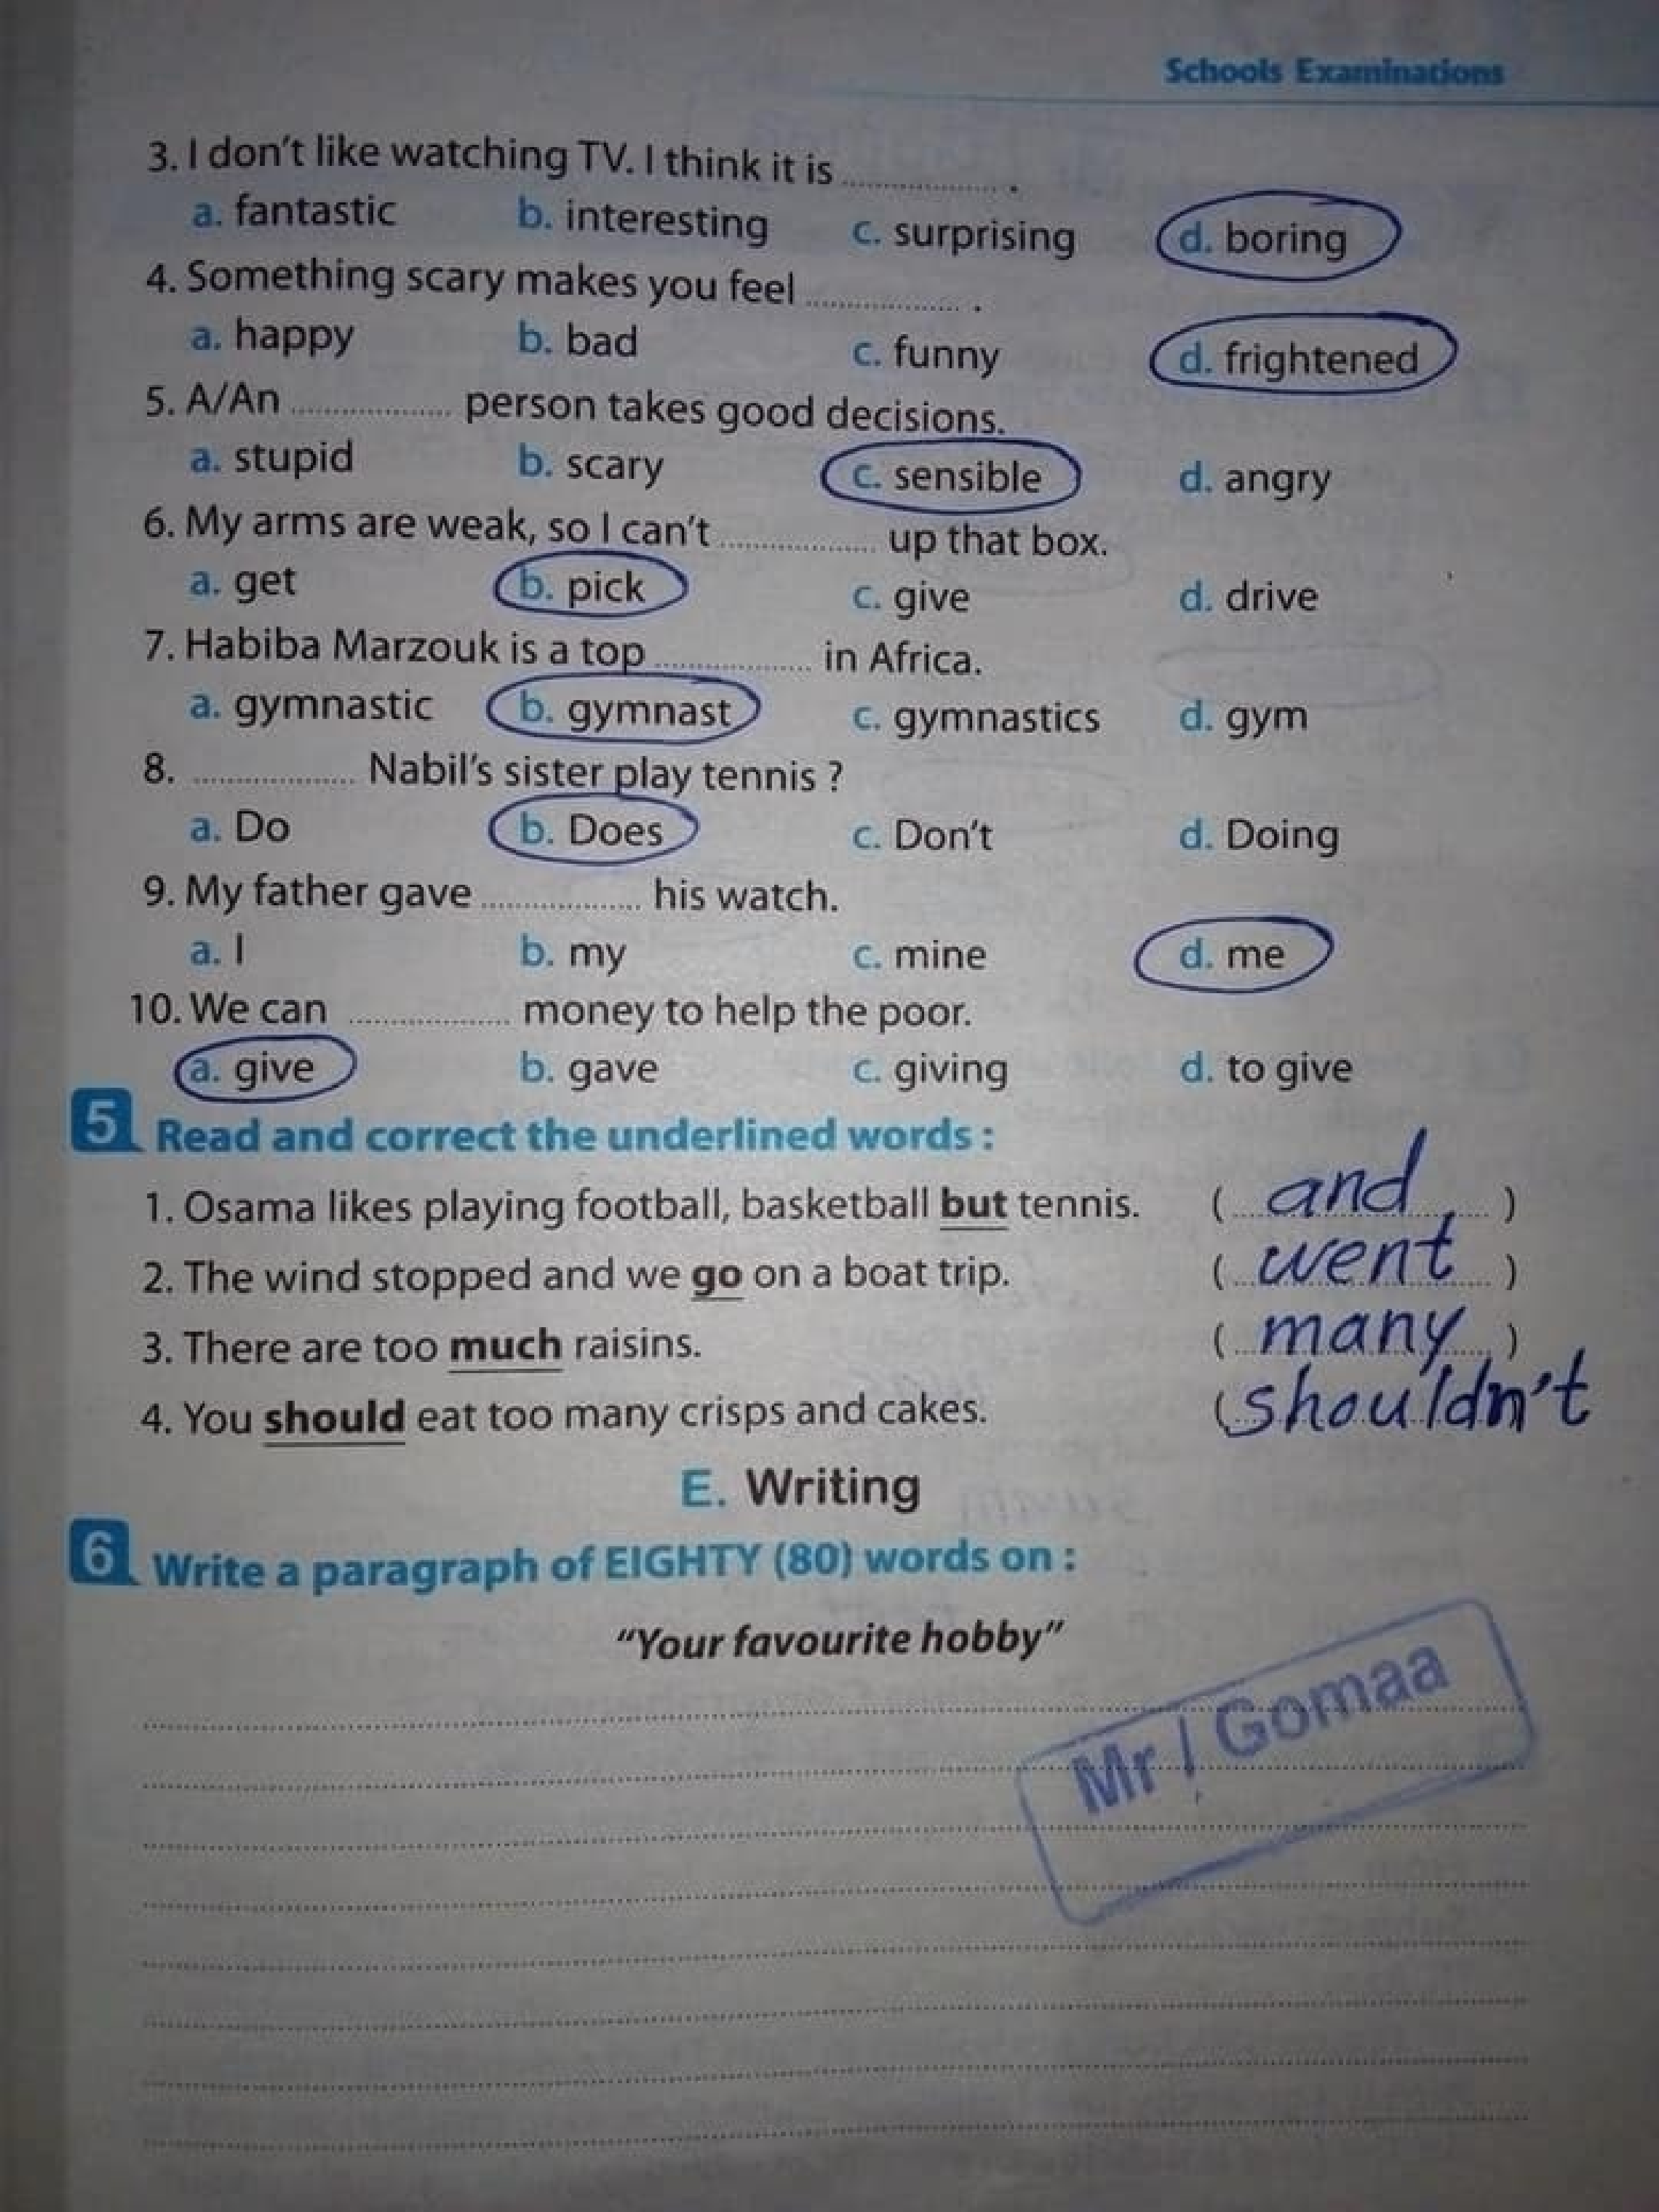 Schools Examinations
3. I don't like watching TV. I think it is .................. .
a. fantastic b. interesting c. surprising d. boring
4. Something scary makes you feel .................. .
a. happy b. bad c. funny d. frightened
5. A/An .................. person takes good decisions.
a. stupid b. scary c. sensible d. angry
6. My arms are weak, so I can't .................. up that box.
a. get b. pick c. give d. drive
7. Habiba Marzouk is a top .................. in Africa.
a. gymnastic b. gymnast c. gymnastics d. gym
8. .................. Nabil's sister play tennis ?
a. Do b. Does c. Don't d. Doing
9. My father gave .................. his watch.
a. I b. my c. mine d. me
10. We can .................. money to help the poor.
a. give b. gave c. giving d. to give
5 Read and correct the underlined words :
1. Osama likes playing football, basketball but tennis. ( and )
2. The wind stopped and we go on a boat trip. ( went )
3. There are too much raisins. ( many )
4. You should eat too many crisps and cakes. ( shouldn't
E. Writing
6 Write a paragraph of EIGHTY (80) words on :
"Your favourite hobby"
Mr / Gomaa